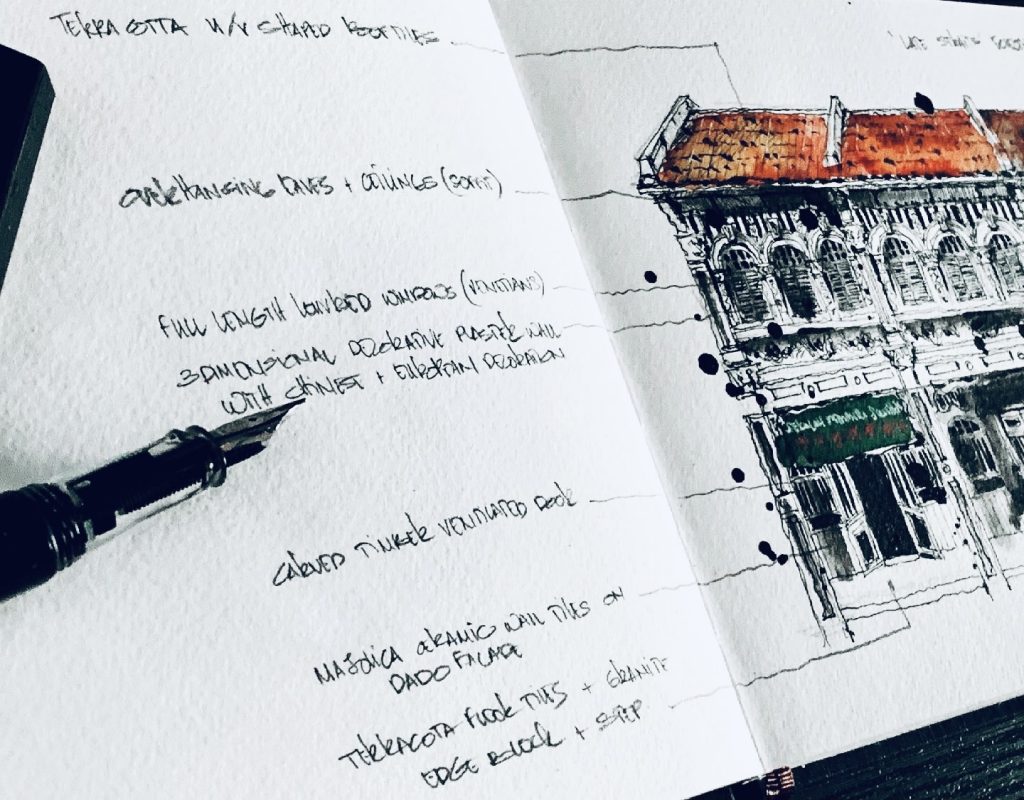 TERRA COTTA U/V SHAPED ROOF TILES
OVERHANGING EAVES + CEILINGS (SOFFIT)
FULL LENGTH LOUVRED WINDOWS (VENITIANS)
3 DIMENSIONAL DECORATIVE PLASTER WALL
WITH CHINESE + EUROPEAN DECORATION
CARVED TIMBER VENTILATED DOOR
MAJOLICA CERAMIC WALL TILES ON
DADO FACADE
TERRACOTA FLOOR TILES + GRANITE
EDGE BLOCK + STEP
'LATE STRAITS